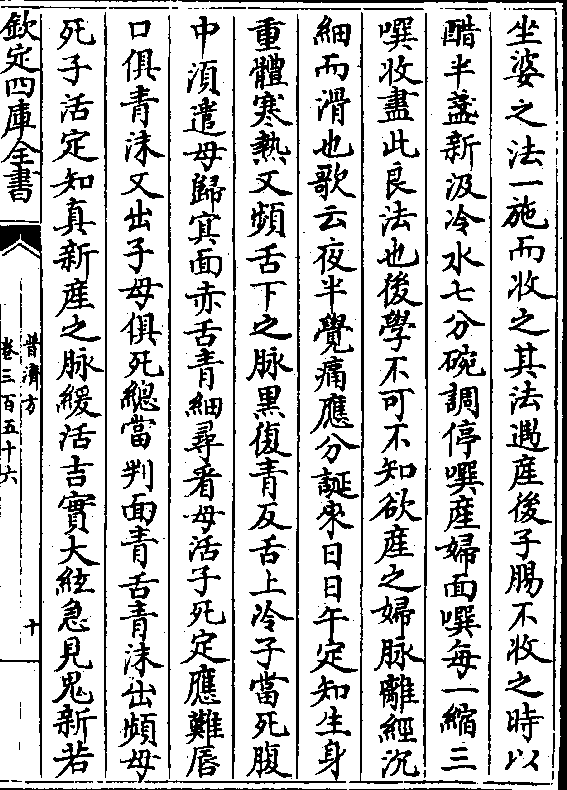 坐婆之法一施而收之其法遇産後子腸不收之時以
醋半盞新汲冷水七分碗調停噀産婦面噀每一縮三
噀收盡此良法也後學不可不知欲産之婦脉離經沉
細而滑也歌云夜半覺痛應分誕來日日午定知生身
重體寒熱又頻舌下之脉黒復青反舌上冷子當死腹
中湏遣母歸㝠面赤舌青細尋看母活子死定應難唇
口俱青沫又出子母俱死總當判面青舌青沫出頻母
死子活定知真新産之脉緩活吉實大絃急見鬼新若
欽定四庫全書
普濟方
卷三百五十六
十